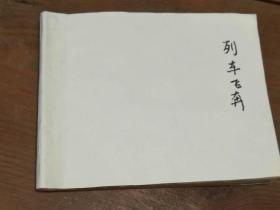 列车飞奔